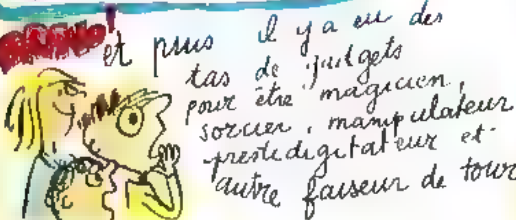 BRAVO!
et puis il y a eu des
tas de gadgets
pour être magicien,
sorcier, manipulateur
prestidigitateur et
autre faiseur de tour